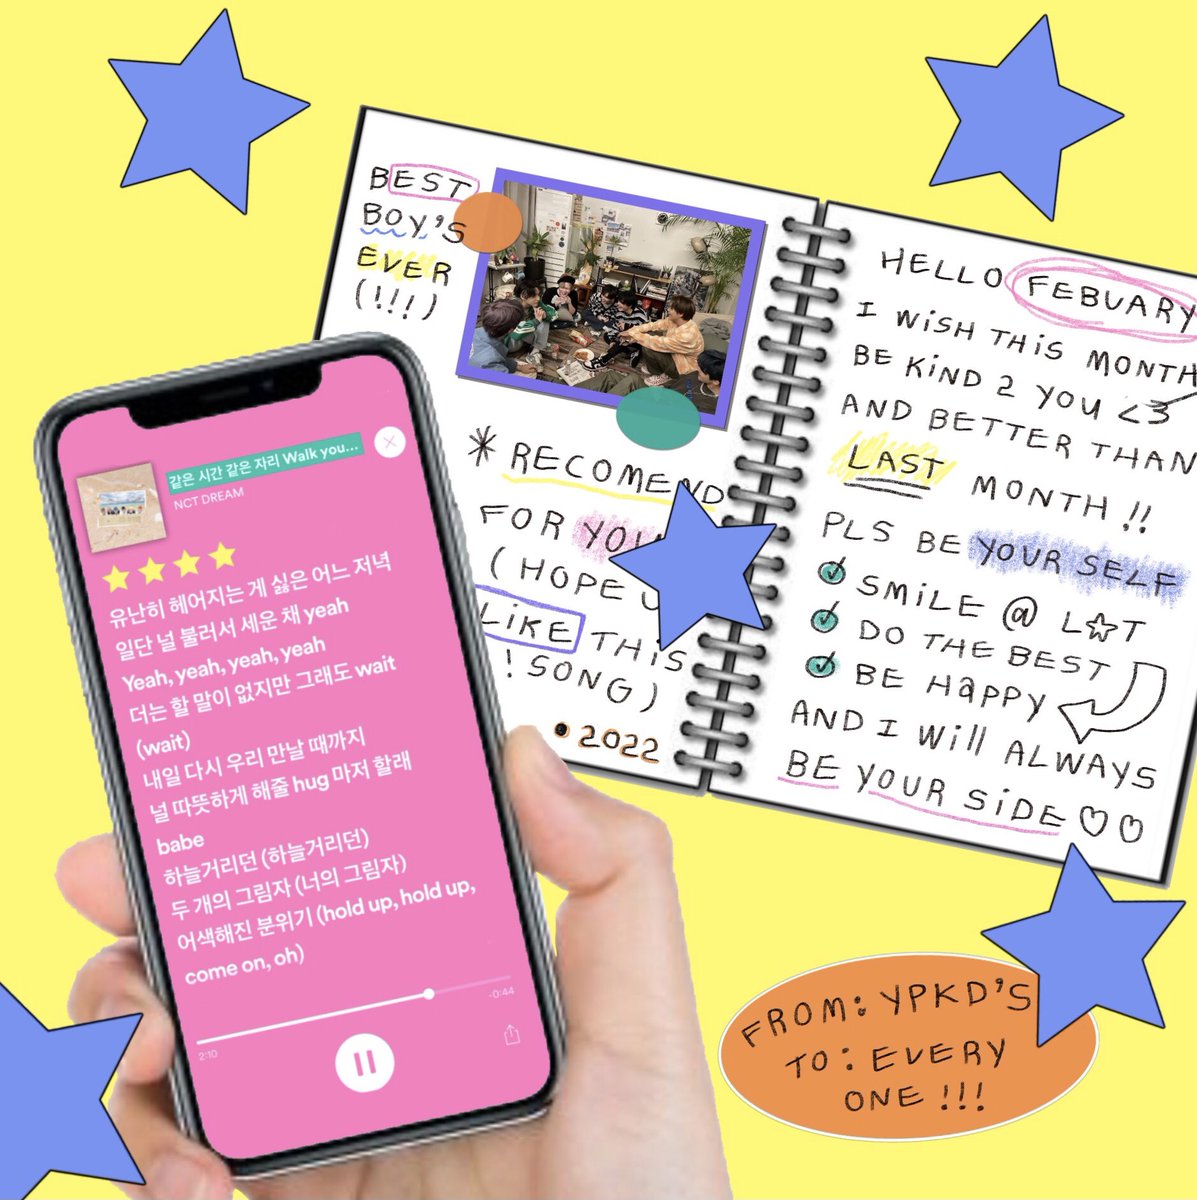 BEST
BOY'S
EVER
(!!!)
* RECOMEND
FOR YOU
(HOPE U
LIKE THIS
! SONG)
• 2022
HELLO FEBUARY
I WISH THIS MONTH
BE KIND 2 YOU <3
AND BETTER THAN
LAST MONTH !!
PLS BE YOUR SELF
SMILE @ L☆T
DO THE BEST
BE HAPPY
AND I WILL ALWAYS
BE YOUR SIDE ♡♡
같은 시간 같은 자리 Walk you...
NCT DREAM
유난히 헤어지는 게 싫은 어느 저녁
일단 널 불러서 세운 채 yeah
Yeah, yeah, yeah, yeah
더는 할 말이 없지만 그래도 wait
(wait)
내일 다시 우리 만날 때까지
널 따뜻하게 해줄 hug 마저 할래
babe
하늘거리던 (하늘거리던)
두 개의 그림자 (너의 그림자)
어색해진 분위기 (hold up, hold up,
come on, oh)
2:10
-0:44
FROM: YPKD'S
TO: EVERY
ONE !!!